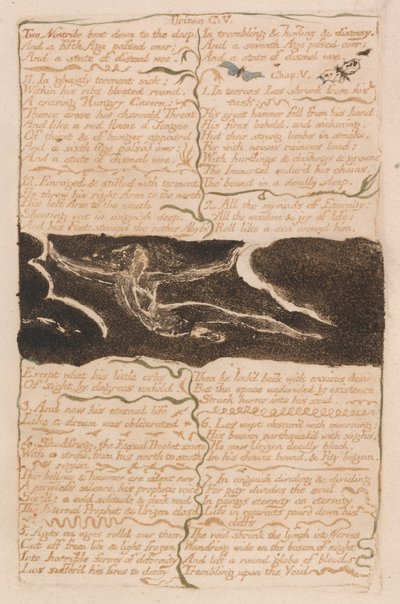 Urizen C: V.
Two Nostrils bent down to the deep.
And a fifth Age passed over;
And a state of dismal woe.
11. In ghastly torment sick:
Within his ribs bloated round,
A craving Hungry Cavern;
Thence arose his channeld Throat
And like a red flame a Tongue
Of thirst & of hunger appeard.
And a sixth Age passed over:
And a state of dismal woe.
12. Enraged & stifled with torment
He threw his right Arm to the north
His left Arm to the south
Shooting out in anguish deep,
And his Feet stampd the nether Abyss
In trembling & howling & dismay.
And a seventh Age passed over:
And a state of dismal woe.
Chap: V.
1. In terrors Los shrunk from his
task:
His great hammer fell from his hand:
His fires beheld, and sickening,
Hid their strong limbs in smoke.
For with noises ruinous loud;
With hurtlings & clashings & groans
The Immortal endur'd his chains,
Tho' bound in a deadly sleep.
2. All the myriads of Eternity:
All the wisdom & joy of life:
Roll like a sea around him,
Except what his little orbs
Of sight by degrees unfold.
3. And now his eternal life
Like a dream was obliterated
4. Shudd'ring, the Eternal Prophet smote
With a stroke, from his north to south
region
The bellows & hammer are silent now
A nerveless silence, his prophetic voice
Siez'd; a cold solitude & dark void
The Eternal Prophet & Urizen clos'd
5. Ages on ages rolld over them
Cut off from life & light frozen
Into horrible forms of deformity
Los suffer'd his fires to decay
Then he look'd back with anxious desire
But the space undivided by existence
Struck horror into his soul.
6. Los wept obscur'd with mourning:
His bosom earthquak'd with sighs;
He saw Urizen deadly black,
In his chains bound, & Pity began,
7. In anguish dividing & dividing
For pity divides the soul
In pangs eternity on eternity
Life in cataracts pourd down his
cliffs
The void shrunk the lymph into Nerves
Wand'ring wide on the bosom of night
And left a round globe of blood
Trembling upon the Void